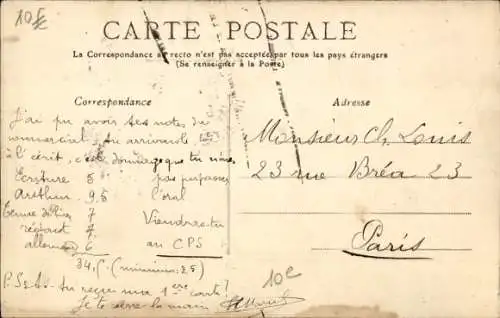 10 €
CARTE POSTALE
La Correspondance au recto n'est pas acceptée par tous les pays étrangers
(Se renseigner à la Poste)
Correspondance
Adresse
J'ai pu avoir tes notes du
commercial, tu arriverais
à l'écrit, c'est dommage que tu n'aies
pas pu passer
l'oral
Viendras-tu
au CPS
Ecriture 5
Arithm 9,5
7
rédact 7
allemand 6
34,5 (minimum: 25)
P.S. As-tu reçu ma 1ère carte?
Je te serre la main
10€
Monsieur Ch. Louis
23 rue Bréa 23
Paris